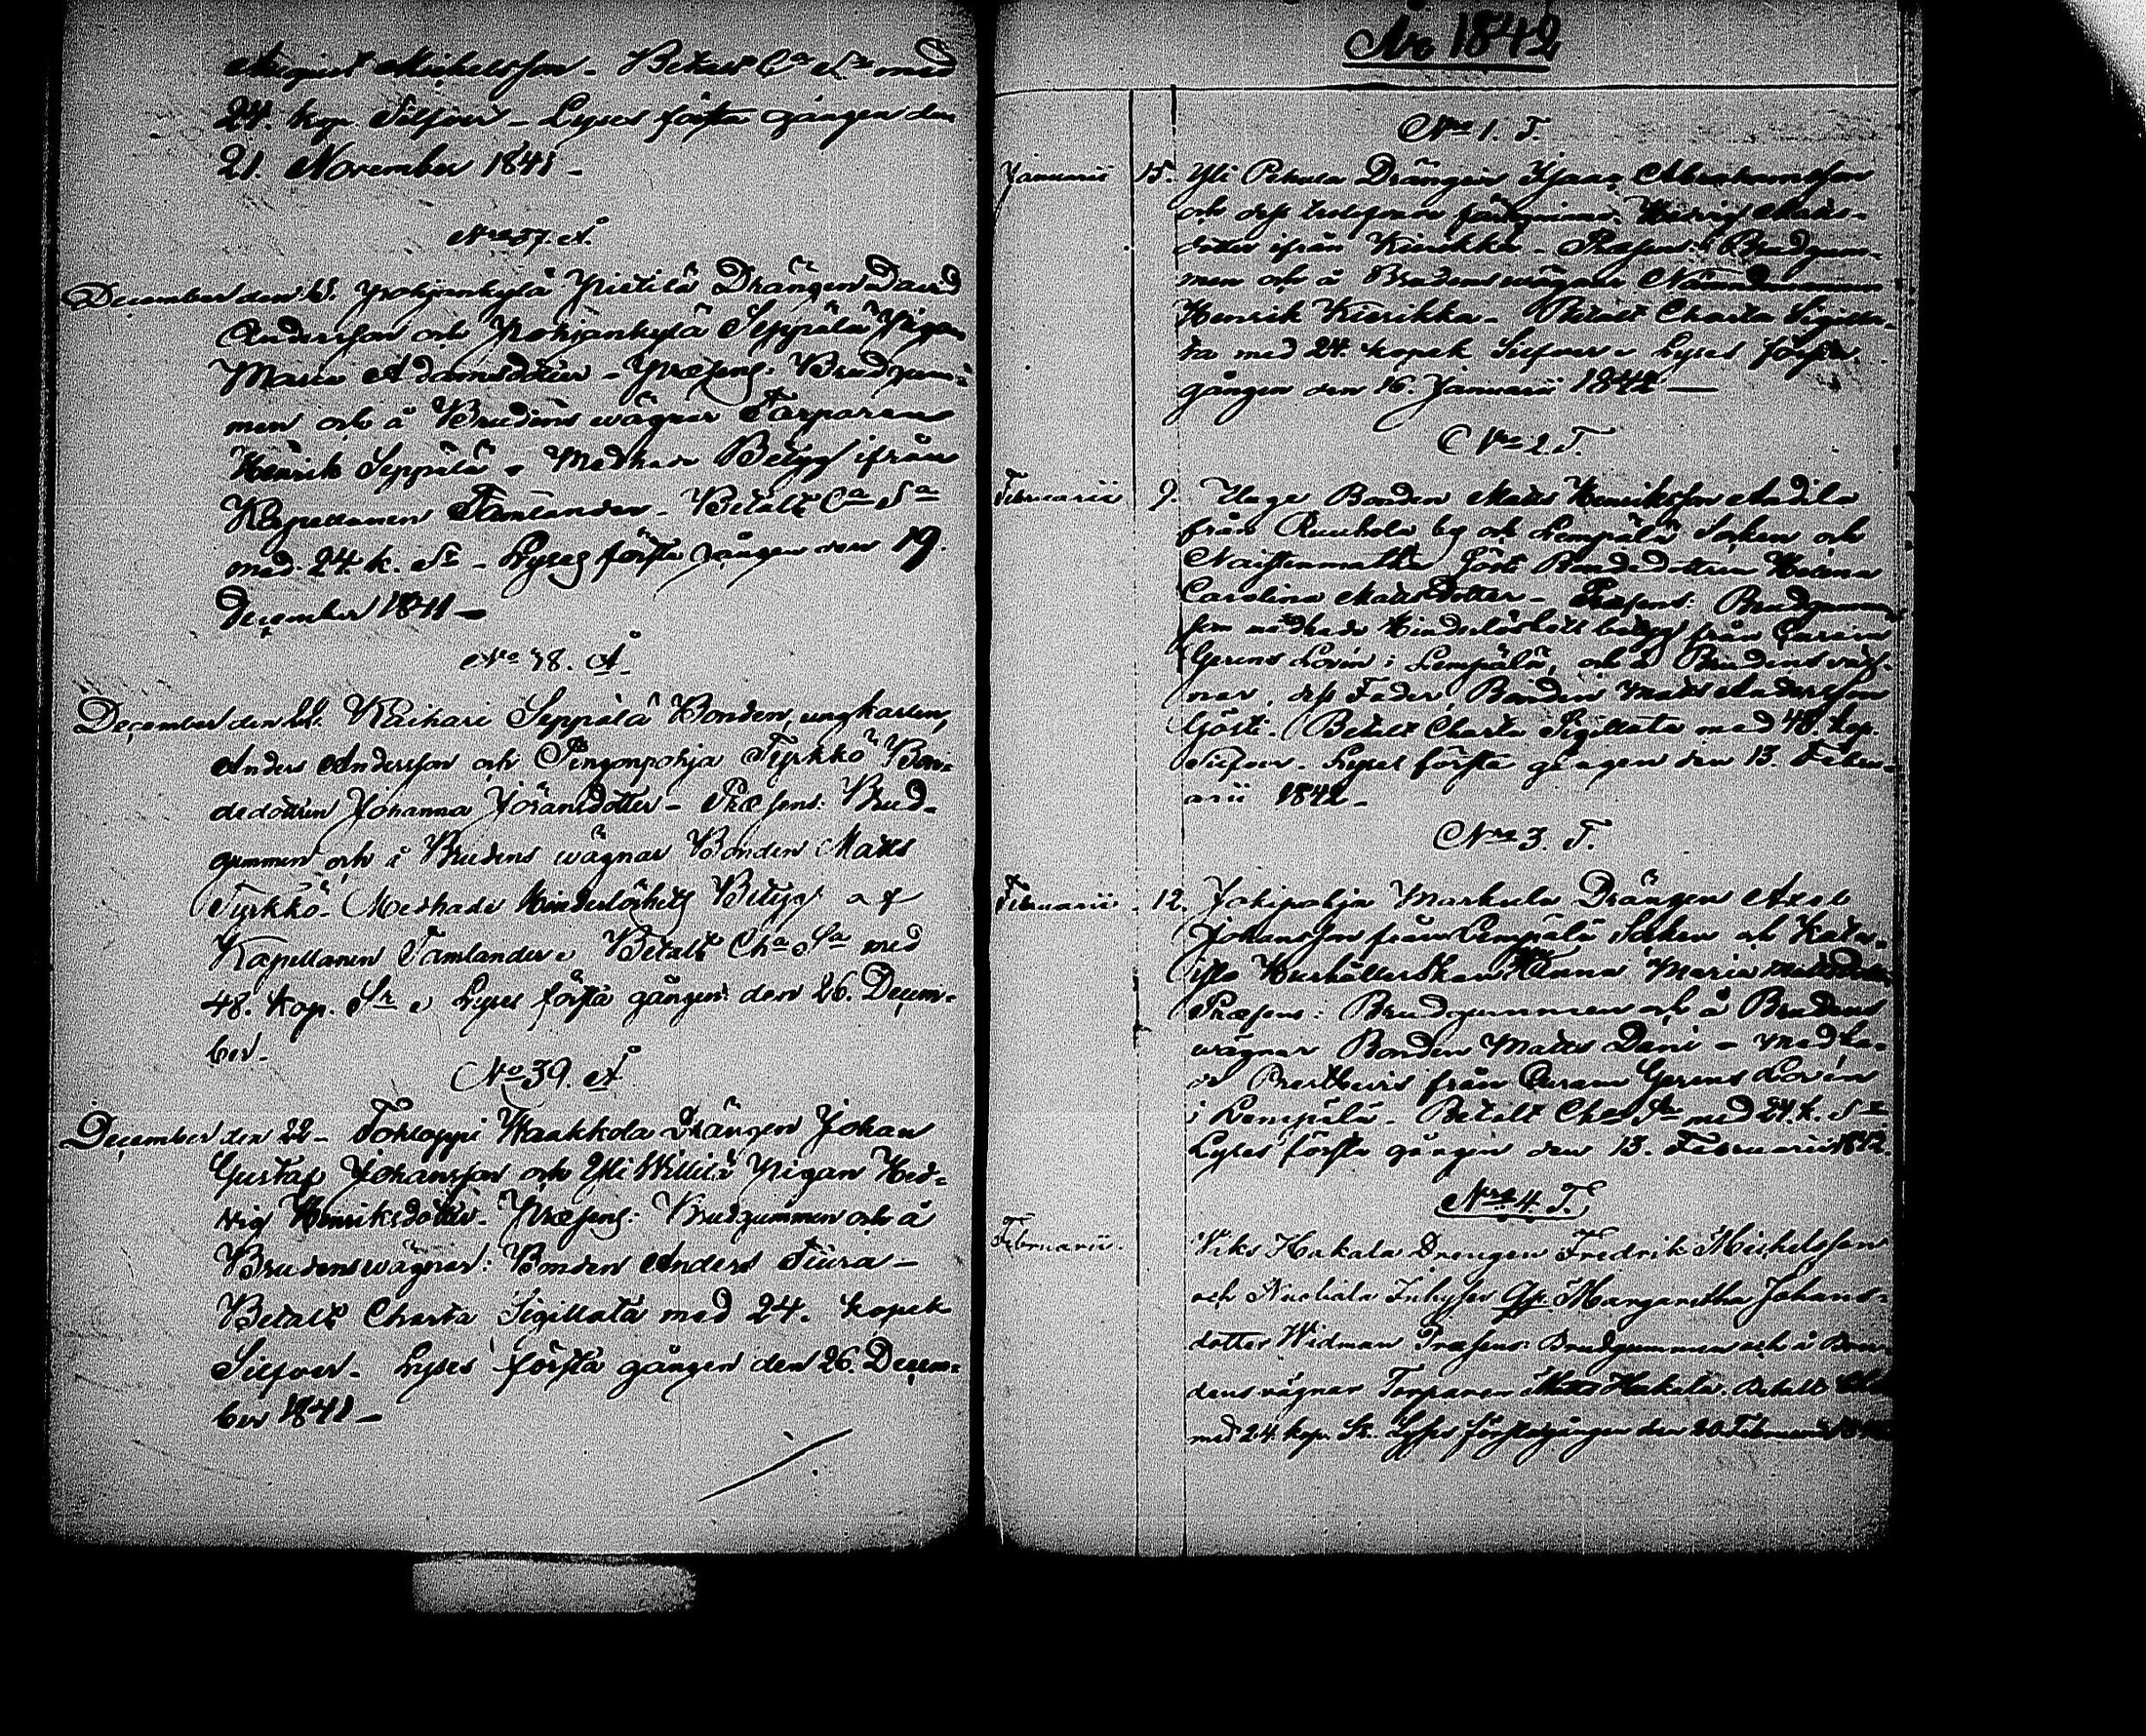 August Michelsson - Betalt Ca Sa med
24. kop. Silfver - Lyses första gången den
21. November 1841 -
No 37. Å.
December den Pohjankylä Pietilä Drängen David
Andersson och Pohjankylä Seppälä Pigan
Maria Adamsdotter - Præsens: Brudgum-
men och å Brudens wägnar Torparen
Henrik Seppälä - Medhade Betyg ifrån
Kapellanen Tamlander - Betalt Ca Sa
med 24. k. Sr - Lyses första gången den 19.
December 1841 -
No 38. Å
December den Kaihari Seppälä Bonden, ungkarlen,
Anders Andersson och Pingonpohja Tyrkkö Bon-
dedottren Johanna Jöransdotter - Præsens: Brud-
gummen och å Brudens wägnar Bonden Matts
Tyrkkö - Medhade Hinderlöshets Betyg af
Kapellanen Tamlander - Betalt Cha Sa med
48. kop. Sr - Lyses första gången den 26. Decem-
ber -
No 39. Å
December den 22 - Tohloppi Haakkola Drängen Johan
Gustaf Johansson och Yli Willilä Pigan Hed-
vig Henriksdotter - Præsens: Brudgummen och å
Brudens wägnar: Bonden Anders Tiura -
Betalt Charta Sigillata med 24. kopek
Silfver - Lyses första gången den 26. Decem-
ber 1841 -
År 1842
No 1. T.
Januarii 15. Yli Drängen Isaac Abrahamsson
och dess trolofvade Hedvig Matts-
dotter ifrån Kierikka - Præsens: Brudgum-
men och å Brudens wägnar Nämndemannen
Henrik Kierikka - Betalt Charta Sigilla-
ta med 24. kopek Silfver - Lyses första
gången den 16. Januarii 1842 -
No 2. T.
Februarii 9. Unge Bonden Matts Henriksson Andila
från by och Lempälä Socken och
Naistenmatka Jösti Bondedottren Helena
Carolina Mattsdotter - Præsens: Brudgummen
som medhade Hinderlöshets betyg från
Gerens Lorén i Lempälä, och å Brudens väg-
nar, dess Fader, Bonden Matts Andersson
Jösti - Betalt Charta Sigillata med 48. kop.
Silfver - Lyses första gången den 13. Febru-
arii 1842 -
No 3. T.
Februarii 12. Jokipohja Markula Drängen Axel
Johansson från Lempälä Socken och
Hushållerskan Anna Maria
Præsens: Brudgummen och å Brudens
wägnar Bonden Matts Dani - Medha-
de från Gerens Lorén
i Lempälä - Betalt Cha Sa med 24. k. Sr
Lyses första gången den 13. Februarii 1842.
No 4. T.
Februarii. Wiks Hakala Drengen Fredrik Michelsson
och Nuoliala Inhyses Margaretha Johans-
dotter Widman Præsens: Brudgummen och å Bru-
dens vägnar Torparen Matts Hakala. Betalt
med 24. kop. Sr. Lyses första gången den 20. Februarii